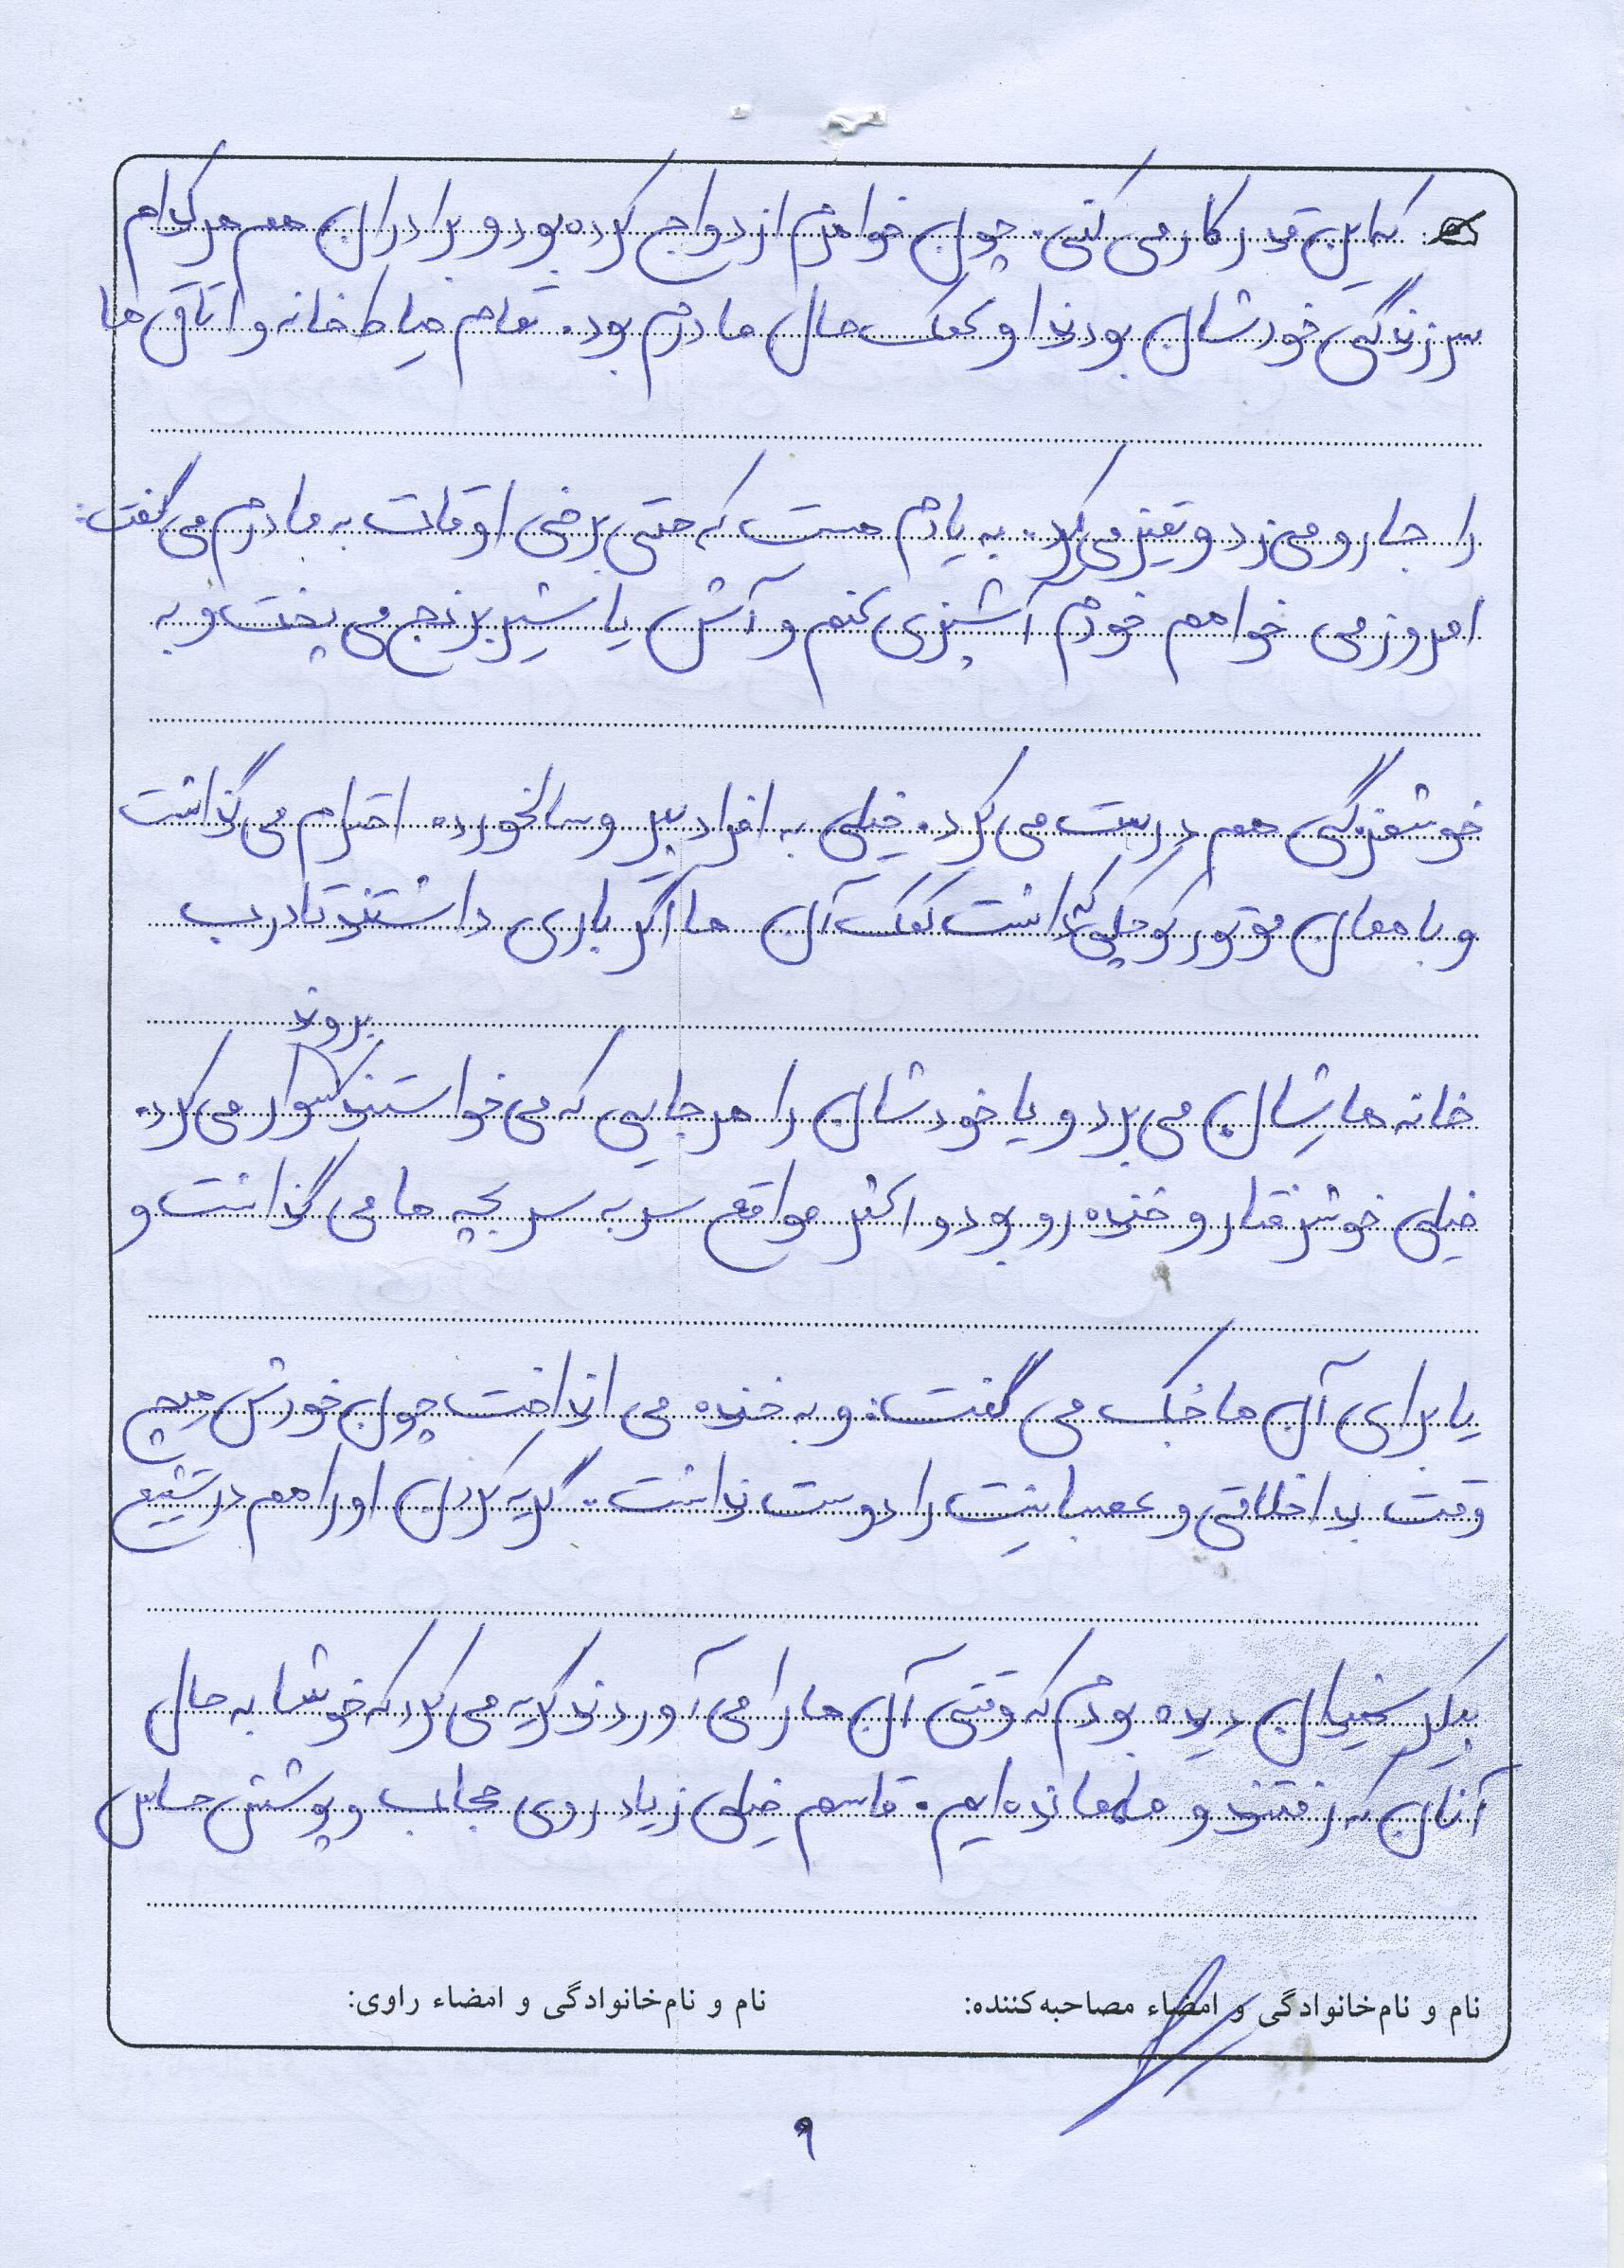 که این قدر کار می کنی. چون خواهرم ازدواج کرده بود و برادران هم هر کدام
سر زندگی خودشان بودند او کمک حال مادرم بود. تمام حیاط خانه و اتاق ها
را جارو می زد و تمیز می کرد. به یادم هست که حتی برخی اوقات به مادرم می گفت:
امروز می خواهم خودم آشپزی کنم و آش یا شیر برنج می پخت و به
خوشمزگی هم درست می کرد. خیلی به افراد پیر و سالخورده احترام می گذاشت
و با همان موتور کوچکی که داشت کمک آن ها اگر باری داشتند تا درب
بروند
خانه هاشان می برد و یا خودشان را هر جایی که می خواستند سوار می کرد.
خیلی خوشرفتار و خنده رو بود و اکثر مواقع سر به سر بچه ها می گذاشت و
یا برای آن ها جک می گفت: و به خنده می انداخت چون خودش هیچ
وقت بد اخلاقی و عصبانیت را دوست نداشت. گریه کردن او را هم در تشییع
پیکر شهیدان دیده بودم که وقتی آن ها را می آوردند گریه می کرد که خوشا به حال
آنان که رفتند و ما مانده ایم. قاسم خیلی زیاد روی حجاب و پوشش حساس
نام و نام‌خانوادگی و امضاء مصاحبه‌کننده:
نام و نام‌خانوادگی و امضاء راوی:
۹